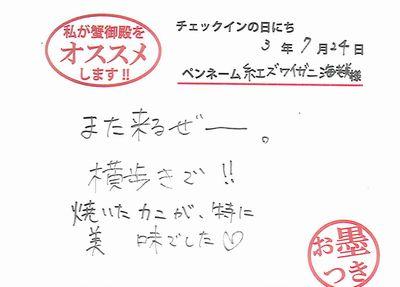 私が蟹御殿を
オススメ
します!!
チェックインの日にち
3 年 7 月 24 日
ペンネーム 紅ズワイガニ海老様
また来るぜー。
横歩きで!!
焼いたカニが、特に
美 味でした♡
お墨
つき